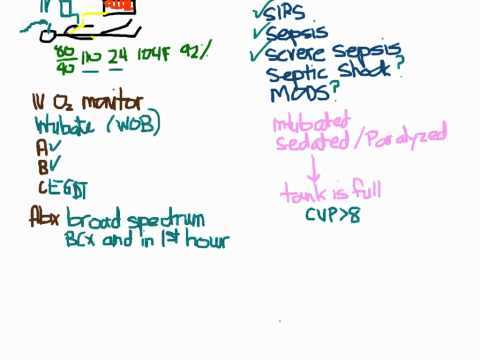 80
40
110 24 104F 92%
IV O2 monitor
Intubate (WOB)
A✓
B✓
C EGDT
Abx broad spectrum
BCx and in 1st hour
✓SIRS
✓Sepsis
✓Severe Sepsis
Septic Shock?
MODS?
intubated
Sedated/Paralyzed
tank is full
CVP>8